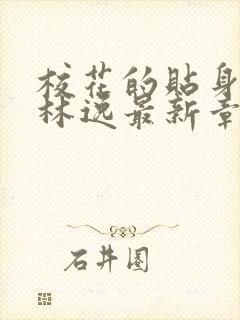 校花的贴身
林逸最新章
石井圈